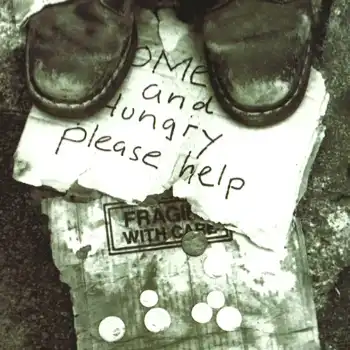 OME
and
Hungry
Please help
FRAGI
WITH CARE